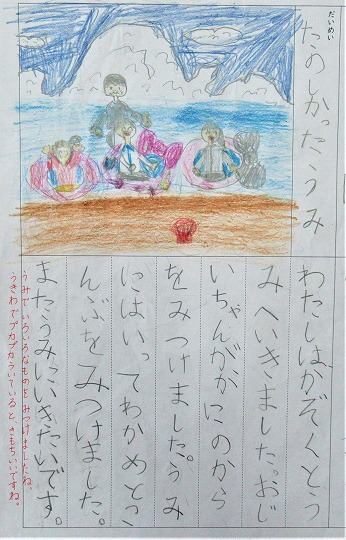 だいめい
たのしかったうみ
わたしはかぞくとう
みへいきました。おじ
いちゃんがかにのから
をみつけました。うみ
にはいってわかめとこ
んぶをみつけました。
またうみにいきたいです。
うみでいろいろなものをみつけましたね。
うきわでプカプカういているときもちいいですね。